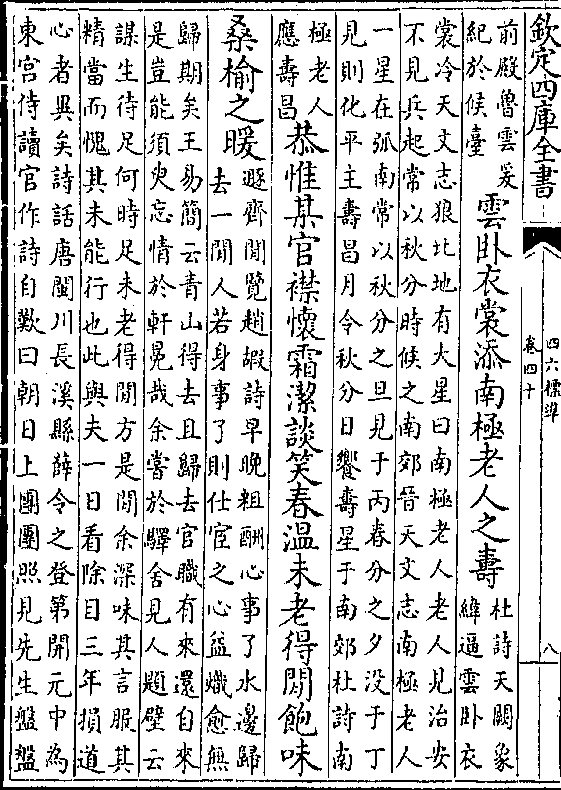 欽定四庫全書
四六標準
卷四十
八
前殿魯雲爰
紀於候臺
雲卧衣裳添南極老人之壽
杜詩天闕象
緯逼雲卧衣
裳冷天文志狼比地有大星曰南極老人老人見治安
不見兵起常以秋分時候之南郊晉天文志南極老人
一星在弧南常以秋分之旦見于丙春分之夕没于丁
見則化平主壽昌月令秋分日饗壽星于南郊杜詩南
極老人
應壽昌
恭惟某官襟懷霜潔談笑春温未老得閒飽味
桑榆之暖
遯齊閒覽趙嘏詩早晚粗酬心事了水邊歸
去一閒人若身事了則仕宦之心益熾愈無
歸期矣王易簡云青山得去且歸去官職有來還自來
是豈能須臾忘情於軒冕哉余嘗於驛舍見人題壁云
謀生待足何時足未老得閒方是閒余深味其言服其
精當而愧其未能行也此與夫一日看除目三年損道
心者異矣詩話唐閩川長溪縣薛令之登第開元中為
東宫侍讀官作詩自歎曰朝日上團團照見先生盤盤